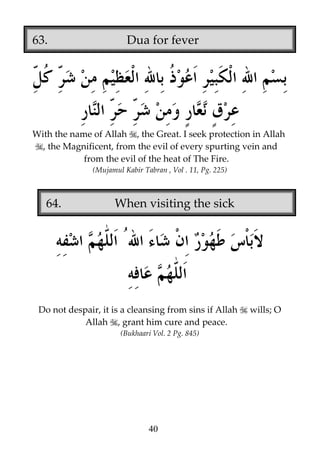 63. Dua for fever
بِسْمِ اللهِ الْكَبِيْرِ اَعُوْذُ بِاللهِ الْعَظِيْمِ مِنْ شَرِّ كُلِّ
عِرْقٍ نَّعَّارٍ وَمِنْ شَرِّ حَرِّ النَّارِ
With the name of Allah ﷺ, the Great. I seek protection in Allah
ﷺ, the Magnificent, from the evil of every spurting vein and
from the evil of the heat of The Fire.
(Mujamul Kabir Tabran , Vol . 11, Pg. 225)
64. When visiting the sick
لَابَاْسَ طَهُوْرٌ اِنْ شَاءَ اللهُ اَللّٰهُمَّ اشْفِهِ
اَللّٰهُمَّ عَافِهِ
Do not despair, it is a cleansing from sins if Allah ﷺ wills; O
Allah ﷺ, grant him cure and peace.
(Bukhaari Vol. 2 Pg. 845)
40